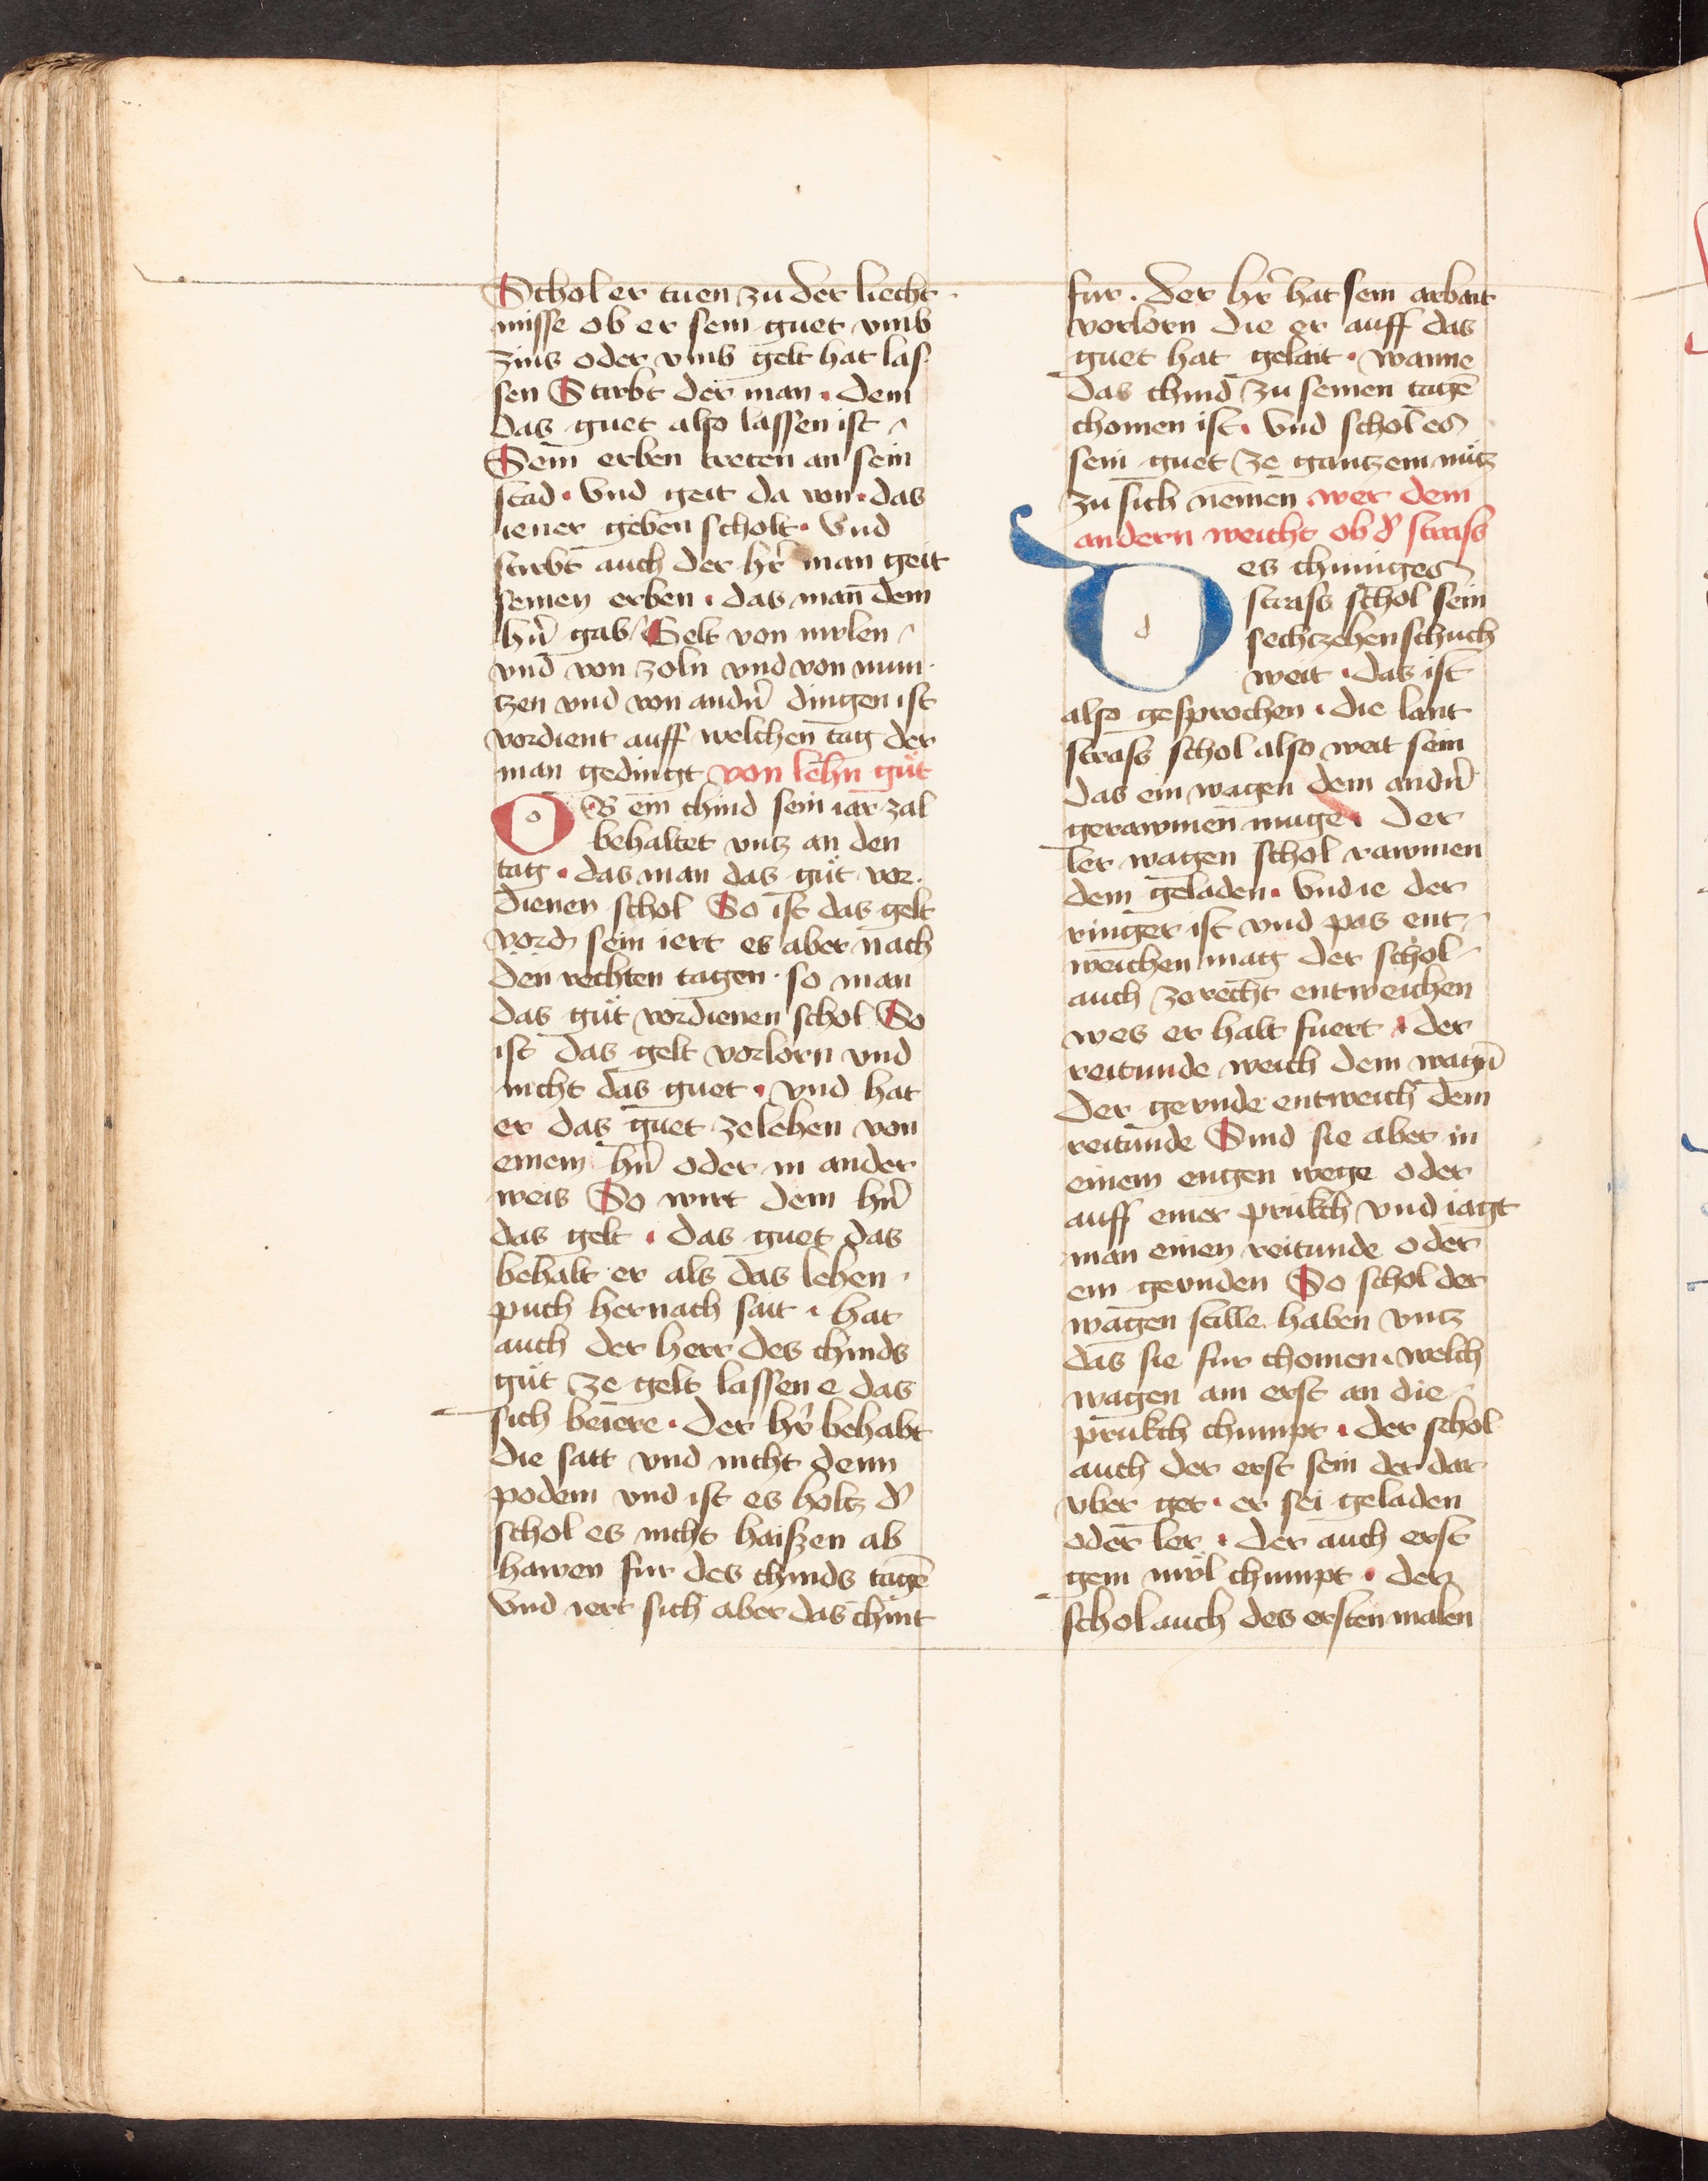 Schol er tuen zu der liecht
misse ob er sein guet vmb
zins oder vmb gelt hat las
sen Stirbt der man · dem
das guet also lassen ist
Sein erben treten an sein
stad · Vnd geit da von · das
iener geben scholt · Vnd
stirbt auch der hr̄ man geit
seinen erben · das man dem
hrn̄ gab Gelt von mvlen
vnd von zoln vnd von mun
tzen vnd von andn̄ dingen ist
vordient auff welchen tag der
man gedingt von lehn guͤt
OB ein chind sein iar zal
behaltet vntz an den
tag · das man das guͤt vor
dienen schol So ist das gelt
vord sein iert es aber nach
den rechten tagen · so man
das guͤt vordienen schol So
ist das gelt vorlorn vnd
nicht das guet · vnd hat
er das guet ze lehen von
einem hrn̄ oder in ander
weis So wirt dem hrn̄
das gelt · das guet das
behalt er als das lehen
puch hernach sait · hat
auch der herr des chinds
guͤt ze gelt lassen e das
sich beiere · der hr̄ behabt
die satt vnd nicht denn
podem vnd ist es holtz d'
schol es nicht haiszen ab
hawen fur des chinds tagē
Vnd iert sich aber das chint
fur · der hr̄ hat sein arbait
vorlorn die er auff das
guet hat gelait · wanne
das chind zu seinen tagē
chomen ist · Vnd schol es
sein guet ze gantzem nutz
zu sich nemen wer dem
andern weicht ob d' strass
Des chuniges
strass schol sein
sechczehen schuch
weit · das ist
also gesprochen · die lant
strass schol also weit sein
das ein wagen dem andn̄
gerawmen muge · der
ler wagen schol rawmen
dem geladen · Vnd ie der
ringer ist vnd pas ent
weichen mag der schol
auch zerecht entweichen
wes er halt fuert · der
reitunde weich dem wagn̄
der gernde entweich dem
reitunde Sind sie aber in
einem engen wege oder
auff einer prukch vnd iagt
man einen reitunde oder
ein gernden So schol der
wagen stille haben vntz
das sie fur chomen · welch
wagen am erst an die
prukch chumpt · der schol
auch der erst sein der dar
vber get · er sei geladen
oder ler · der auch erst
gein mvl chumpt · der
schol auch des ersten malen